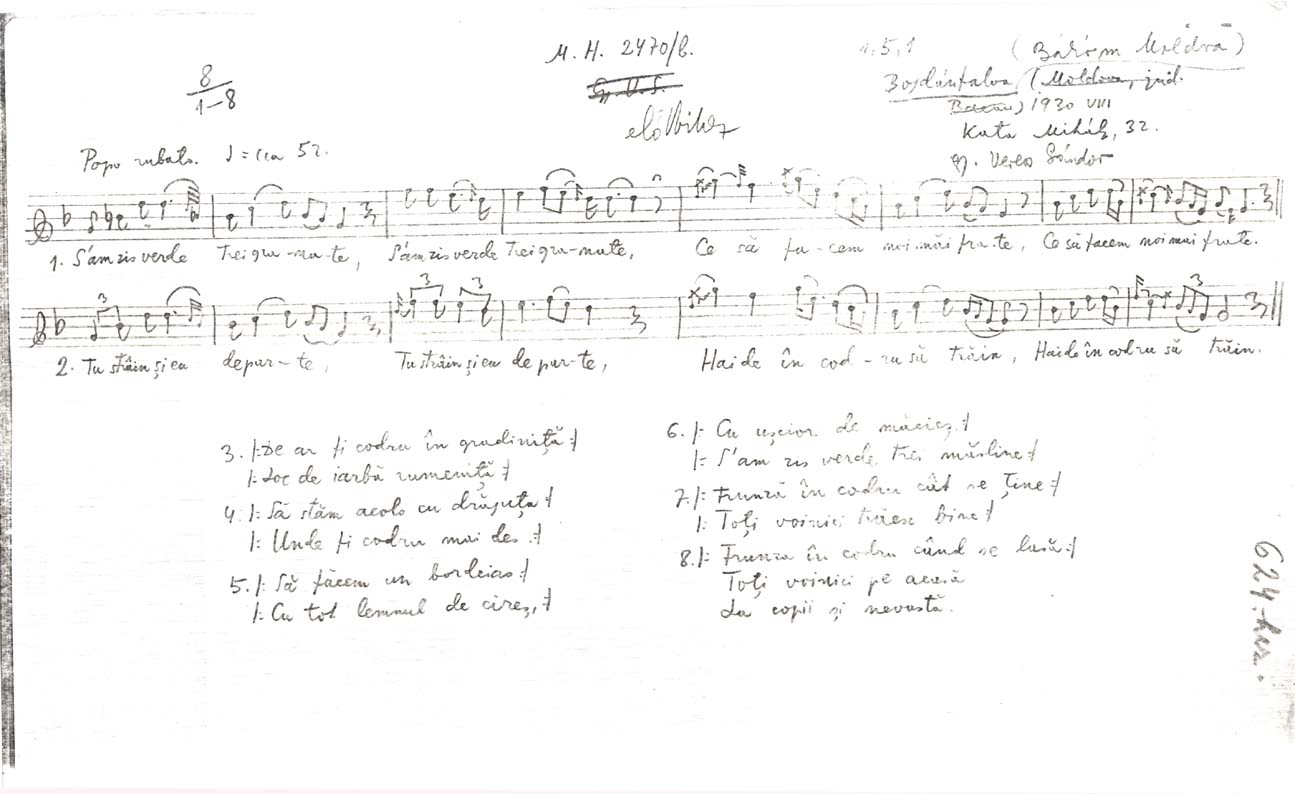 M. H. 2470/b.
1,5,1
8
1-8
Bogdánfalva (Moldova, jud.
1930 VIII
előbbihez
Kata Mihály, 32.
gy. Veress Sándor
Poco rubato. ♩ = cca 52.
1. S'am zis verde Trei gra-na-te, S'am zis verde Trei gra-nate, Ce să fa-cem noi măi fra-te, Ce să facem noi mai frate.
3 3 3 3
2. Tu străin și eu depar-te, Tu străin și eu de par-te, Hai de în cod-ru să trăin, Hai de în codru să trăin.
3. /: De ar fi codru în gradiniță :/
/: Loc de iarbă rumeniță :/
4. /: Să stăm acolo cu drăguța :/
/: Unde fi codru mai des :/
5. /: Să făcem un bordeias :/
/: Cu tot lemnul de cireș, :/
6. /: Cu ușcior de măcieș :/
/: S'am zis verde trei măsline :/
7. /: Frunză în codru cât se ține :/
/: Toți voinici trăesc bine :/
8. /: Frunza în codru când se lasă :/
Toți voinici pe acasă
La copii și nevastă.
624. hsz.